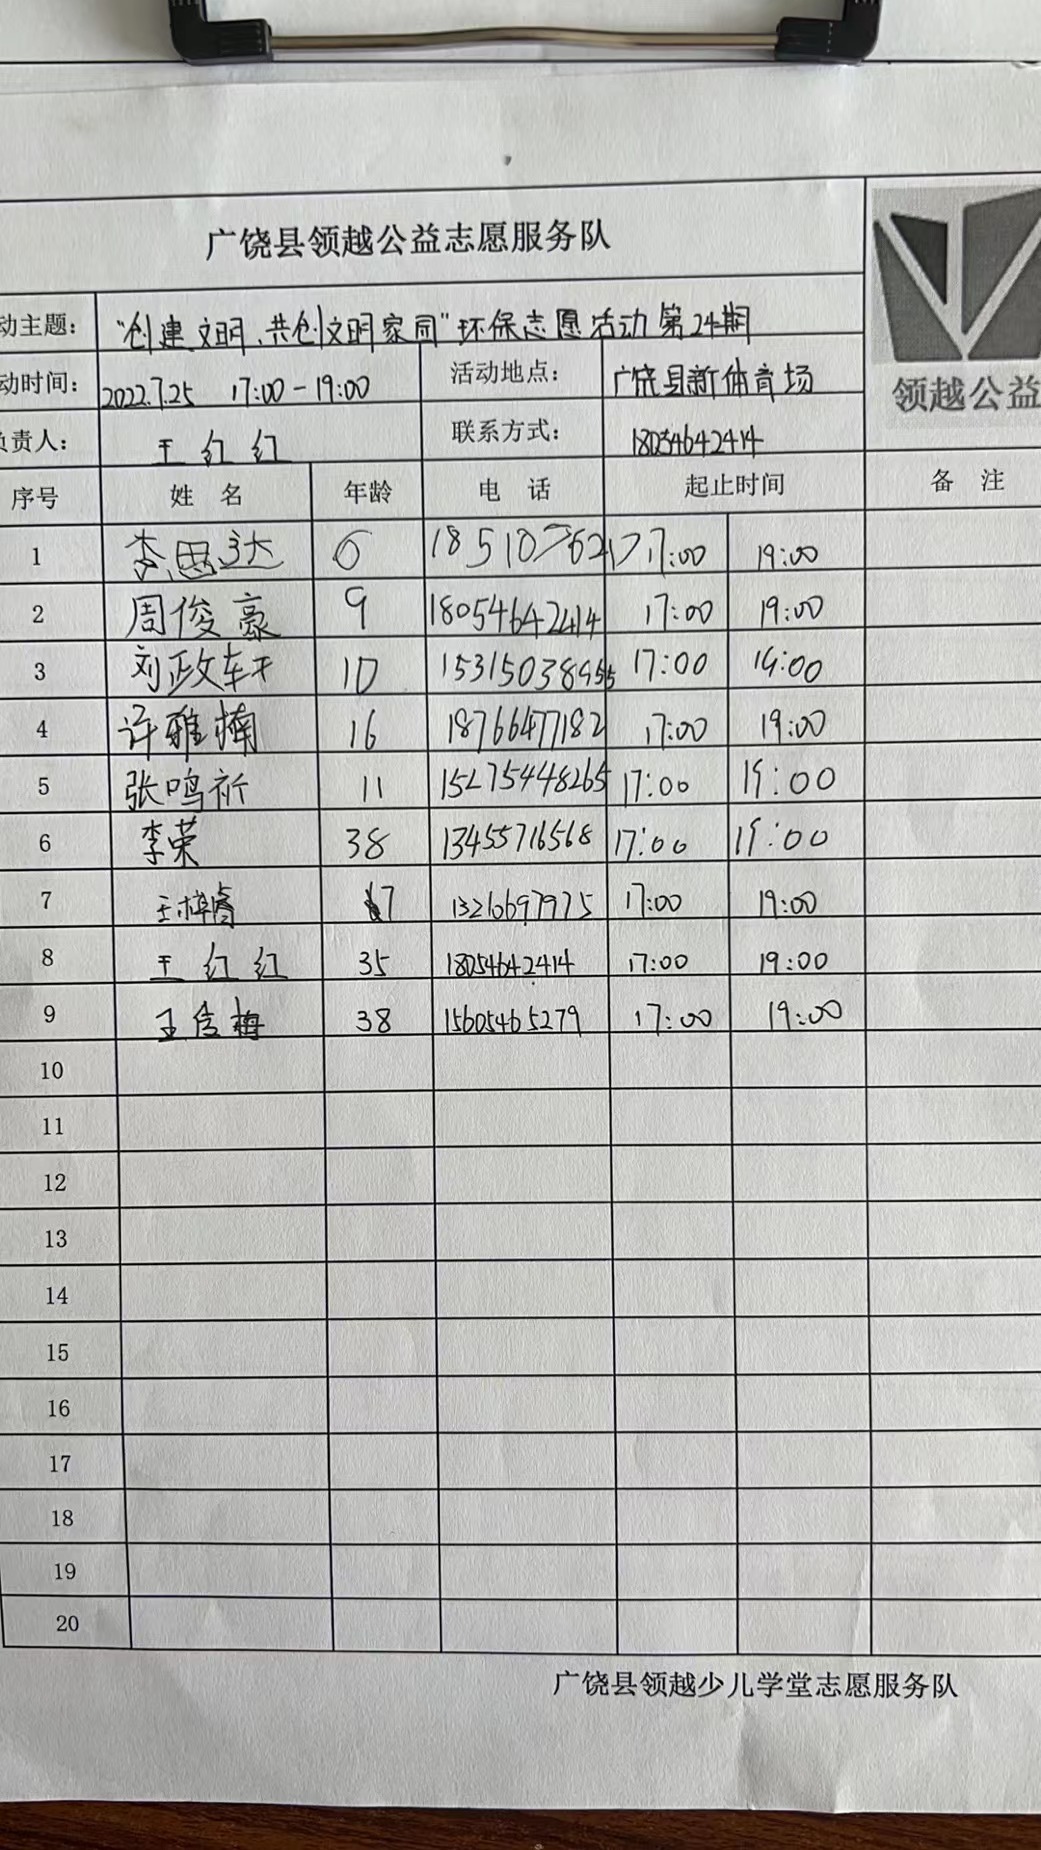 广饶县领越公益志愿服务队
领越公益
动主题： "创建文明、共创文明家园"环保志愿活动第24期
动时间： 2022.7.25 17:00-19:00 活动地点： 广饶县新体育场
负责人： 王红红 联系方式： 18054642414
序号 姓 名 年龄 电 话 起止时间 备 注
1 李思达 6 18510762 17:00 19:00
2 周俊豪 9 18054642414 17:00 19:00
3 刘政轩 10 15315038955 17:00 19:00
4 许雅楠 16 18766477182 17:00 19:00
5 张鸣祈 11 15275448265 17:00 19:00
6 李荣 38 13455716568 17:00 19:00
7 王梓睿 7 13210697975 17:00 19:00
8 王红红 35 18054642414 17:00 19:00
9 王俊梅 38 15605465279 17:00 19:00
10
11
12
13
14
15
16
17
18
19
20
广饶县领越少儿学堂志愿服务队